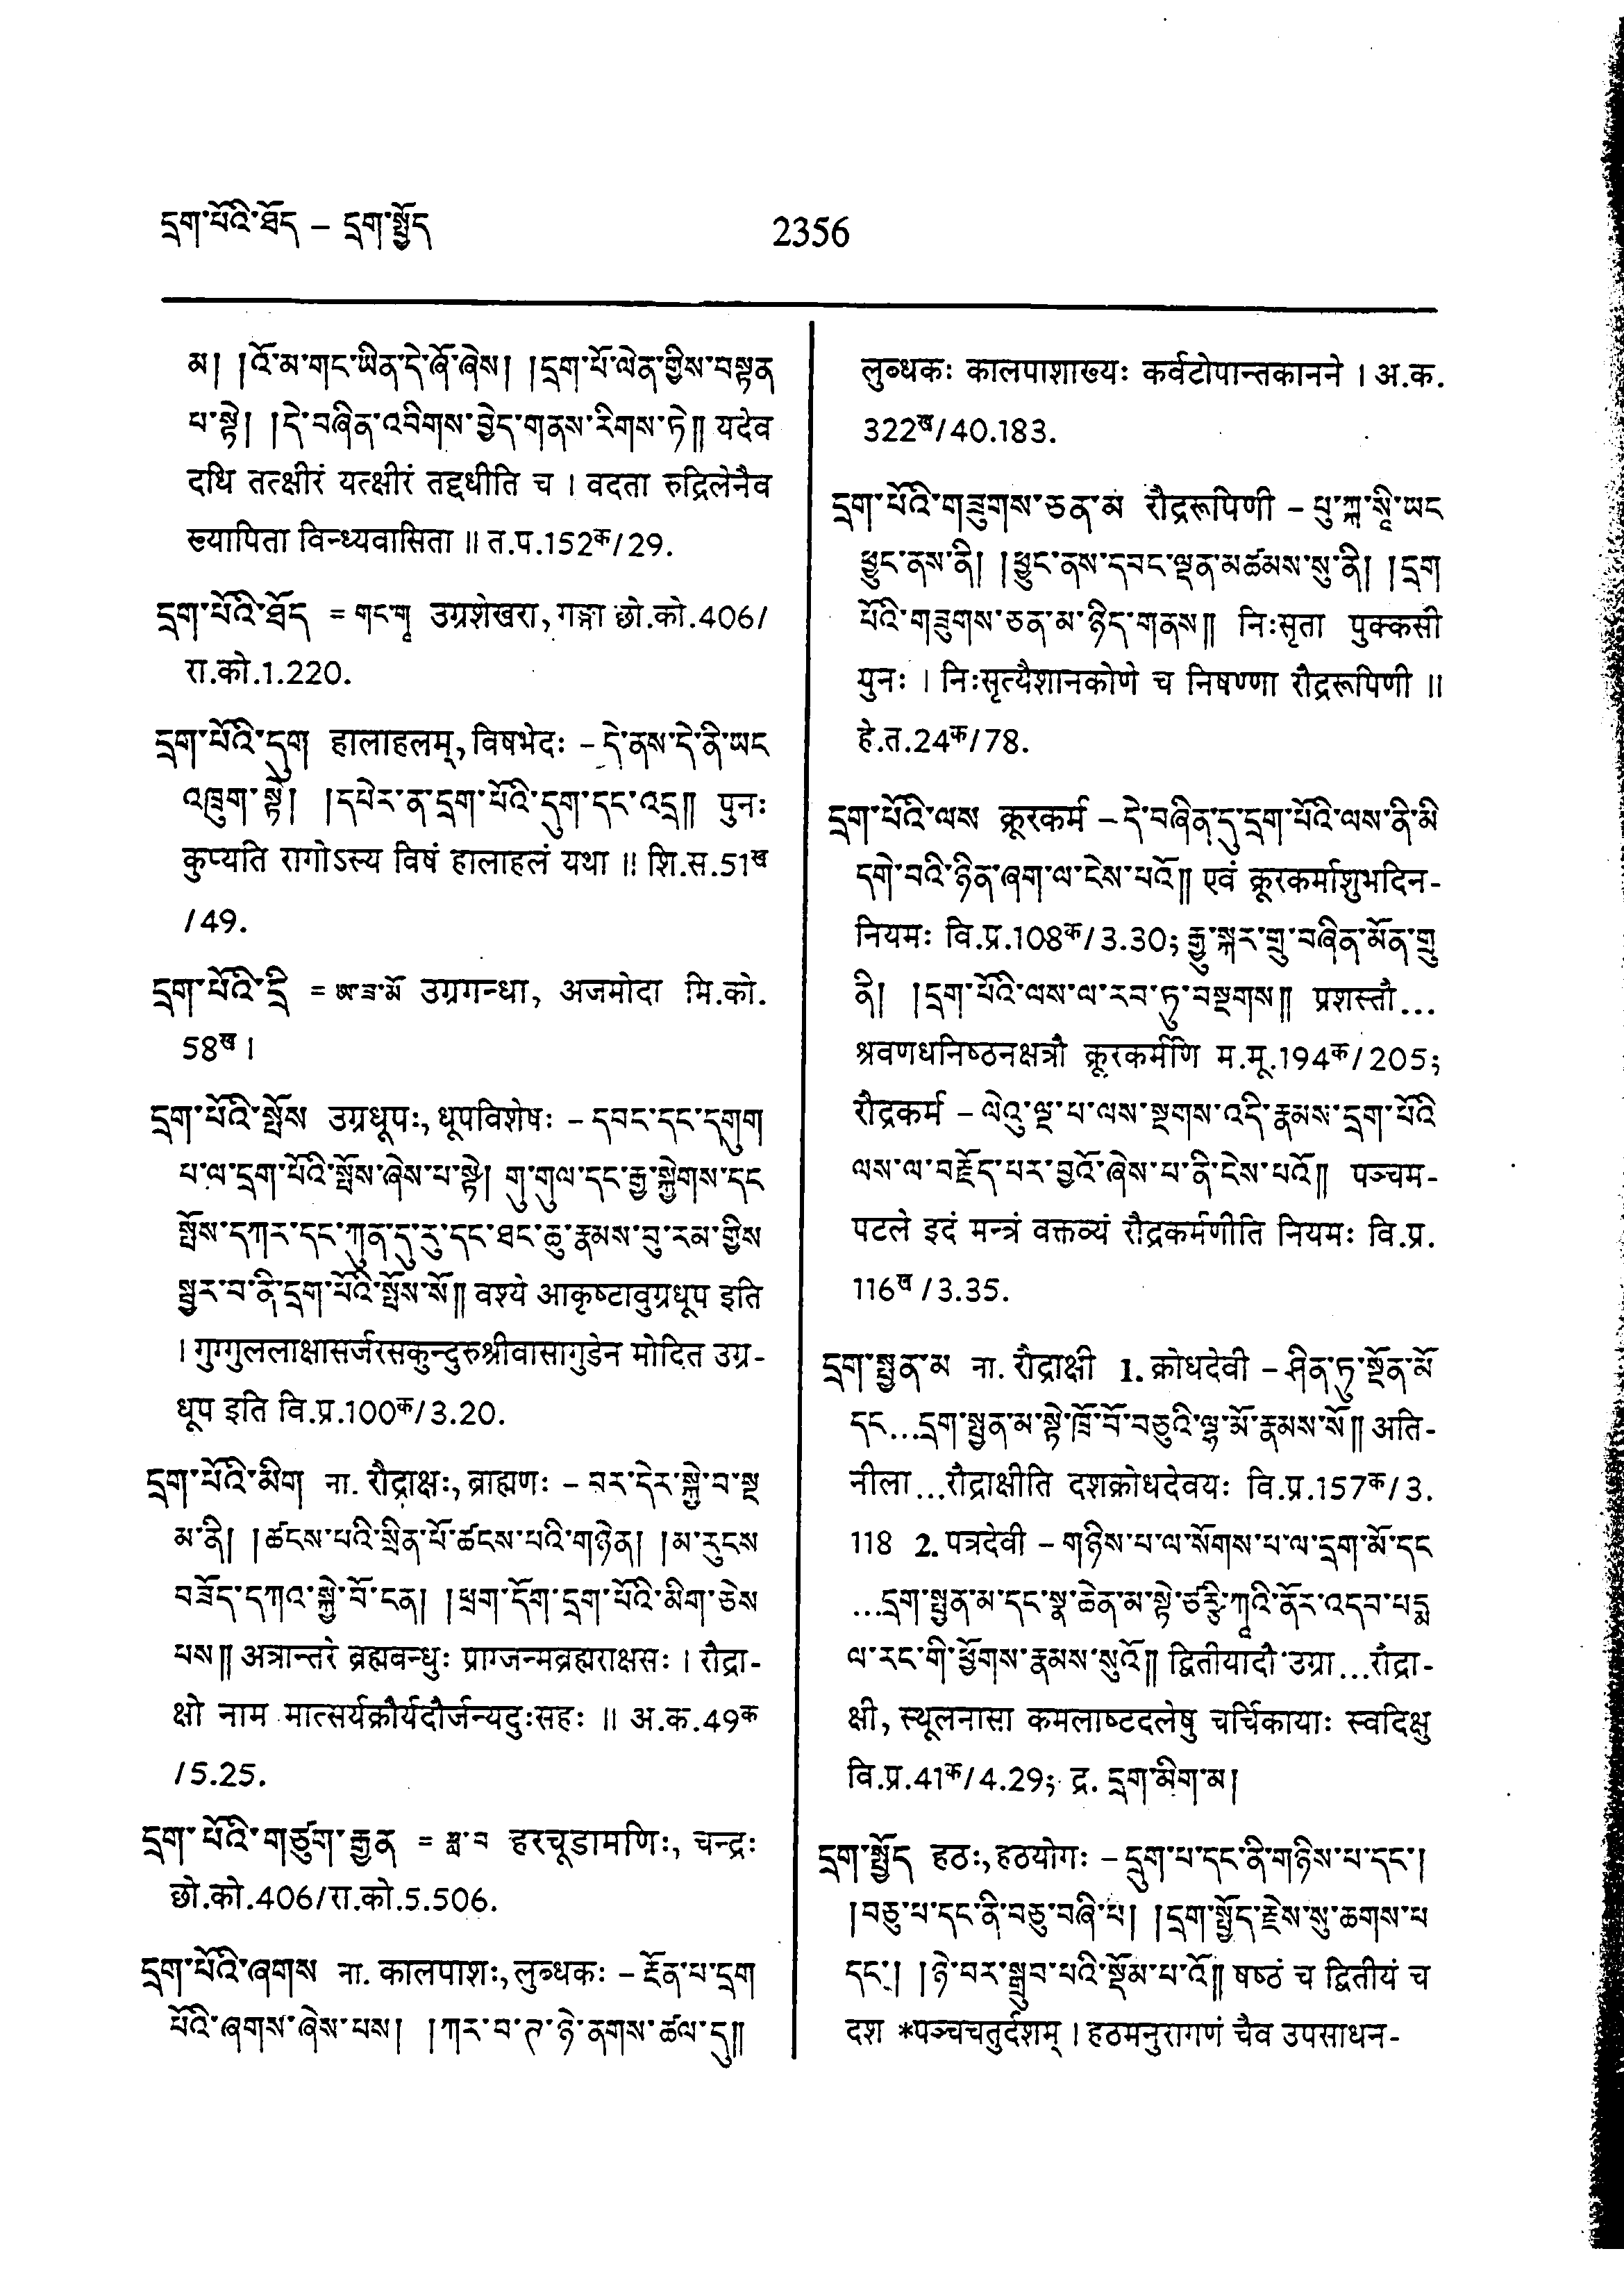 དྲག་པོའི་ཐོད – དྲག་སྤྱོད
2356
མ། །འོ་མ་གང་ཡིན་དེ་ཞོ་ཞེས། །དྲག་པོ་ལེན་གྱིས་བསྟན
པ་སྟེ། །དེ་བཞིན་འབིགས་བྱེད་གནས་རིགས་ཏེ༎ यदेव
दधि तत्क्षीरं यत्क्षीरं तद्दधीति च । वदता रुद्रिलेनैव
ख्यापिता विन्ध्यवासिता ॥ त.प.152क/29.
དྲག་པོའི་ཐོད = གང་གཱ उग्रशेखरा, गङ्गा छो.को.406/
रा.को.1.220.
དྲག་པོའི་དུག हालाहलम्, विषभेदः – དེ་ནས་དེ་ནི་ཡང
འཁྲུག་སྟེ། །དཔེར་ན་དྲག་པོའི་དུག་དང་འདྲ༎ पुनः
कुप्यति रागोऽस्य विषं हालाहलं यथा ॥ शि.स.51ख
/49.
དྲག་པོའི་དྲི = ཨ་ཟ་མོ उग्रगन्धा, अजमोदा मि.को.
58ख ।
དྲག་པོའི་སྤོས उग्रधूपः, धूपविशेषः – དབང་དང་དགུག
པ་ལ་དྲག་པོའི་སྤོས་ཞེས་པ་སྟེ། གུ་གུལ་དང་རྒྱ་སྐྱེགས་དང
སྤོས་དཀར་དང་ཀུན་དུ་རུ་དང་ཐང་ཆུ་རྣམས་བུ་རམ་གྱིས
སྦྱར་བ་ནི་དྲག་པོའི་སྤོས་སོ༎ वश्ये आकृष्टावुग्रधूप इति
। गुग्गुललाक्षासर्जरसकुन्दुरुश्रीवासागुडेन मोदित उग्र-
धूप इति वि.प्र.100क/3.20.
དྲག་པོའི་མིག ना. रौद्राक्षः, ब्राह्मणः – བར་དེར་སྐྱེ་བ་སྔ
མ་ནི། །ཚངས་པའི་སྲིན་པོ་ཚངས་པའི་གཉེན། །མ་རུངས
བཟོད་དཀའ་སྐྱེ་བོ་ངན། །ཕྲག་དོག་དྲག་པོའི་མིག་ཅེས
པས༎ अत्रान्तरे ब्रह्मबन्धुः प्राग्जन्मब्रह्मराक्षसः । रौद्रा-
क्षो नाम मात्सर्यक्रौर्यदौर्जन्यदुःसहः ॥ अ.क.49क
/5.25.
དྲག་པོའི་གཙུག་རྒྱན = ཟླ་བ हरचूडामणिः, चन्द्रः
छो.को.406/रा.को.5.506.
དྲག་པོའི་ཞགས ना. कालपाशः, लुब्धकः – རྔོན་པ་དྲག
པོའི་ཞགས་ཞེས་པས། །ཀར་བ་ཊ་ཉེ་ནགས་ཚལ་དུ༎
लुब्धकः कालपाशाख्यः कर्वटोपान्तकानने । अ.क.
322ख/40.183.
དྲག་པོའི་གཟུགས་ཅན་མ रौद्ररूपिणी – པུ་ཀྐ་སཱི་ཡང
ཕྱུང་ནས་ནི། །ཕྱུང་ནས་དབང་ལྡན་མཚམས་སུ་ནི། །དྲག
པོའི་གཟུགས་ཅན་མ་ཉིད་གནས༎ निःसृता पुक्कसी
पुनः । निःसृत्यैशानकोणे च निषण्णा रौद्ररूपिणी ॥
हे.त.24क/78.
དྲག་པོའི་ལས क्रूरकर्म – དེ་བཞིན་དུ་དྲག་པོའི་ལས་ནི་མི
དགེ་བའི་ཉིན་ཞག་ལ་ངེས་པའོ༎ एवं क्रूरकर्माशुभदिन-
नियमः वि.प्र.108क/3.30; རྒྱུ་སྐར་གྲུ་བཞིན་མོན་གྲུ
ནི། །དྲག་པོའི་ལས་ལ་རབ་ཏུ་བསྔགས༎ प्रशस्तौ...
श्रवणधनिष्ठनक्षत्रौ क्रूरकर्मणि म.मू.194क/205;
रौद्रकर्म – ལེའུ་ལྔ་པ་ལས་སྔགས་འདི་རྣམས་དྲག་པོའི
ལས་ལ་བརྗོད་པར་བྱའོ་ཞེས་པ་ནི་ངེས་པའོ༎ पञ्चम-
पटले इदं मन्त्रं वक्तव्यं रौद्रकर्मणीति नियमः वि.प्र.
116ख/3.35.
དྲག་སྤྱན་མ ना. रौद्राक्षी 1. क्रोधदेवी – ཤིན་ཏུ་སྔོན་མོ
དང...དྲག་སྤྱན་མ་སྟེ་ཁྲོ་བོ་བཅུའི་ལྷ་མོ་རྣམས་སོ༎ अति-
नीला...रौद्राक्षीति दशक्रोधदेवयः वि.प्र.157क/3.
118 2. पत्रदेवी – གཉིས་པ་ལ་སོགས་པ་ལ་དྲག་མོ་དང
...དྲག་སྤྱན་མ་དང་སྣ་ཆེན་མ་སྟེ་ཙརྩི་ཀཱའི་ནོར་འདབ་པདྨ
ལ་རང་གི་ཕྱོགས་རྣམས་སུའོ༎ द्वितीयादौ उग्रा...रौद्रा-
क्षी, स्थूलनासा कमलाष्टदलेषु चर्चिकायाः स्वदिक्षु
वि.प्र.41क/4.29; द्र. དྲག་མིག་མ།
དྲག་སྤྱོད हठः, हठयोगः – དྲུག་པ་དང་ནི་གཉིས་པ་དང་།
།བཅུ་པ་དང་ནི་བཅུ་བཞི་པ། །དྲག་སྤྱོད་རྗེས་སུ་ཆགས་པ
དང་། །ཉེ་བར་སྒྲུབ་པའི་སྡོམ་པ་འོ༎ षष्ठं च द्वितीयं च
दश *पञ्चचतुर्दशम् । हठमनुरागणं चैव उपसाधन-